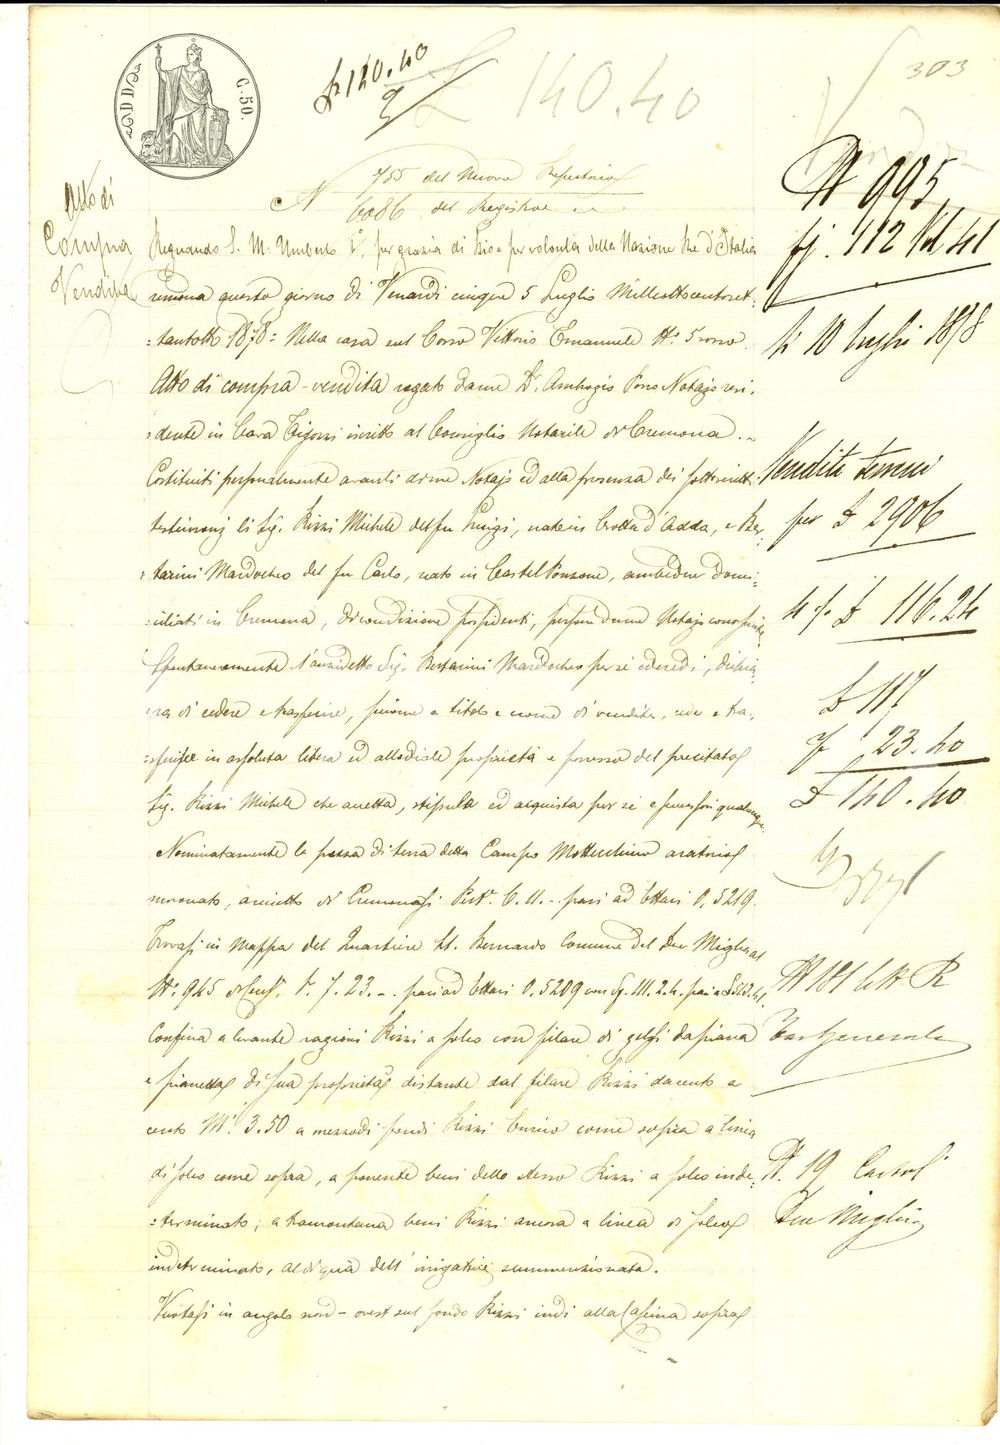 303
£ 140.40
£ 140.40
2
C. 50.
755 del Nuovo Repertorio
N
6086 del Registro
Atto di
Compra
Vendita
Regnando S. M. Umberto I°. per grazia di Dio e per volontà della Nazione Re d'Italia
Cremona questo giorno di Venerdì cinque 5 Luglio Milleottocentoset-
:tantotto 1878: Nella casa sul Corso Vittorio Emanuele N°. 5 rosso.
Atto di compra-vendita rogato da me Dr. Ambrogio Notajo resi.
:dente in Cava Tigozzi iscritto al Consiglio Notarile di Cremona.
Costituiti personalmente avanti di me Notajo ed alla presenza dei sottoscritti
testimonj li Sig. Rizzi Michele del fu Luigi, nato in Crotta d'Adda, e Ber,
:tarini Mardocheo del fu Carlo, nato in Castel Ponzone, ambedue domi:
:ciliati in Cremona, di condizione possidenti, persone da me Notajo conosciute
Spontaneamente l'anzidetto Sig. Bertarini Mardocheo per sé ed eredi, dichia
:ra di cedere e trasferire, siccome a titolo e nome di vendita, cede e tra,
:sferisce in assoluta libera ed allodiale proprietà e possesso del precitato
Sig. Rizzi Michele che accetta, stipula ed acquista per sé e successori qualunque
Nominatamente la pezza di terra detta Campo aratorio
moronato, di Cremonesi Pert. 6. 11. - pari ad Ettari 0.5219.
Trovasi in mappa del Quartiere St. Bernardo Comune del Due Miglia al
N°. 945 di Cens. P. 7. 23. -. pari ad Ettari 0.5209
Confina a levante ragioni Rizzi a solco con filare di gelsi da piana
e pianetta di sua proprietà distante dal filare Rizzi da cento a
cento M. 3.50 a mezzodì fondi Rizzi come sopra a linea
di solco come sopra, a ponente beni dello stesso Rizzi a solco inde:
:terminato; a tramontana beni Rizzi ancora a linea di solco
indeterminato, al di quà dell'irrigatrice summenzionata.
Vuotasi in angolo nord-ovest sul fondo Rizzi indi alla Cascina sopra
N 995,
fj. 112 Vol 41
li 10 luglio 1878
Vendite
per £ 2906
4 % £ 116.24
£ 117
23.40
£ 140.40
N 181
N. 19
Due Miglia